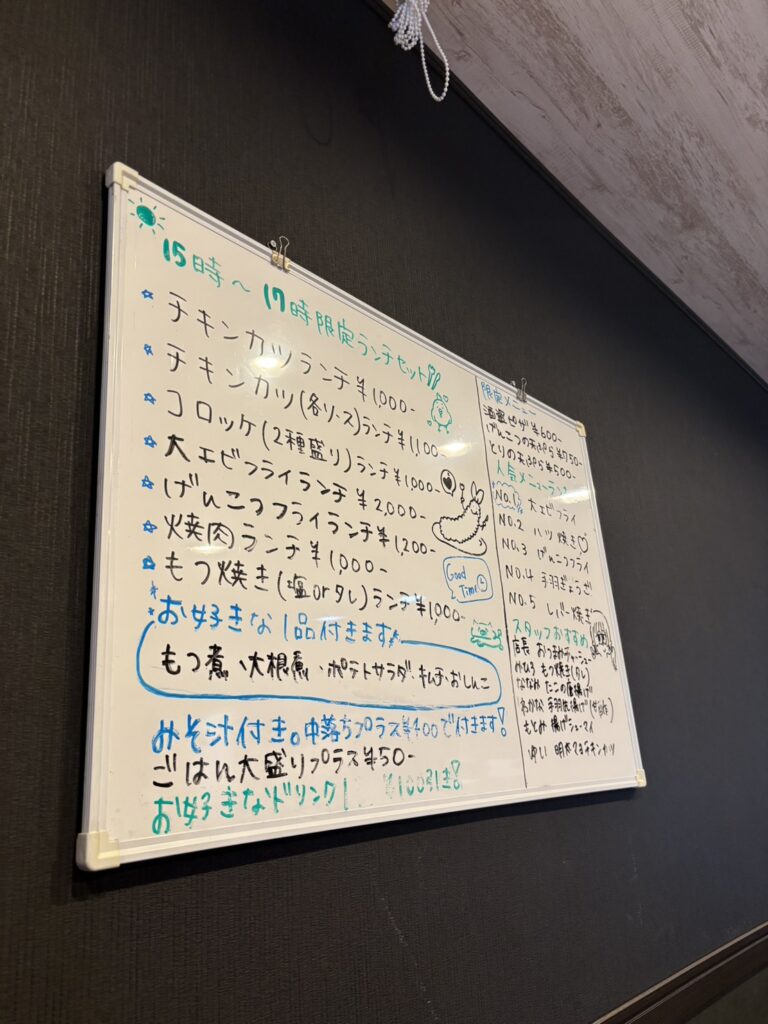 15時〜17時限定ランチセット
チキンカツランチ¥1,000-
チキンカツ(各ソース)ランチ¥1,100-
コロッケ(2種盛り)ランチ¥1,000-
大エビフライランチ¥2,000-
げんこつフライランチ¥1,200-
焼肉ランチ¥1,000-
もつ焼き(塩orタレ)ランチ¥1,000-
Good Time
お好きな1品付きます
もつ煮、大根煮・ポテトサラダ・キムチ・おしんこ
みそ汁付き。中落ちプラス¥400で付きます!
ごはん大盛りプラス¥50-
お好きなドリンク1 ¥100引き!
限定メニュー
¥600-
げんこつの天ぷら¥750-
とりの天ぷら¥500-
人気メニューラン
No.1 大エビフライ
No.2 ハツ焼き♡
No.3 げんこつフライ
No.4 手羽ぎょうざ
No.5 レバー焼き
スタッフおすすめ
店長 おつまみチャーシュー
みひろ もつ焼き(タレ)
ななみ たこの唐揚げ
あかな 手羽唐揚げ
もとみ 揚げシューマイ
ゆい 明太マヨチキンカツ